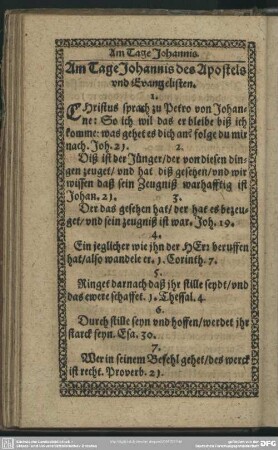 Am Tage Johannis.
Am Tage Johannis des Apostels
vnd Evangelisten.
1.
CHristus sprach zu Petro von Johan-
ne: So ich wil das er bleibe biß ich
komme: was gehet es dich an? folge du mir
nach. Joh. 21. 2.
Diß ist der Jünger/ der von diesen din-
gen zeuget/ vnd hat diß geschen/ vnd wir
wissen daß sein Zeugniß warhafftig ist
Johan. 21. 3.
Der das gesehen hat/ der hat es bezeu-
get/ vnd sein zeugniß ist war. Joh. 19.
4.
Ein jeglicher wie jhn der HErr beruffen
hat/ also wandele er. 1. Corinth. 7.
5.
Ringet darnach daß jhr stille seydt/ vnd
das ewere schaffet. 1. Thessal. 4.
6.
Durch stille seyn vnd hoffen/ werdet jhr
starck seyn. Esa. 30.
7.
Wer in seinem Befehl gehet/ des werck
ist recht. Proverb. 21.